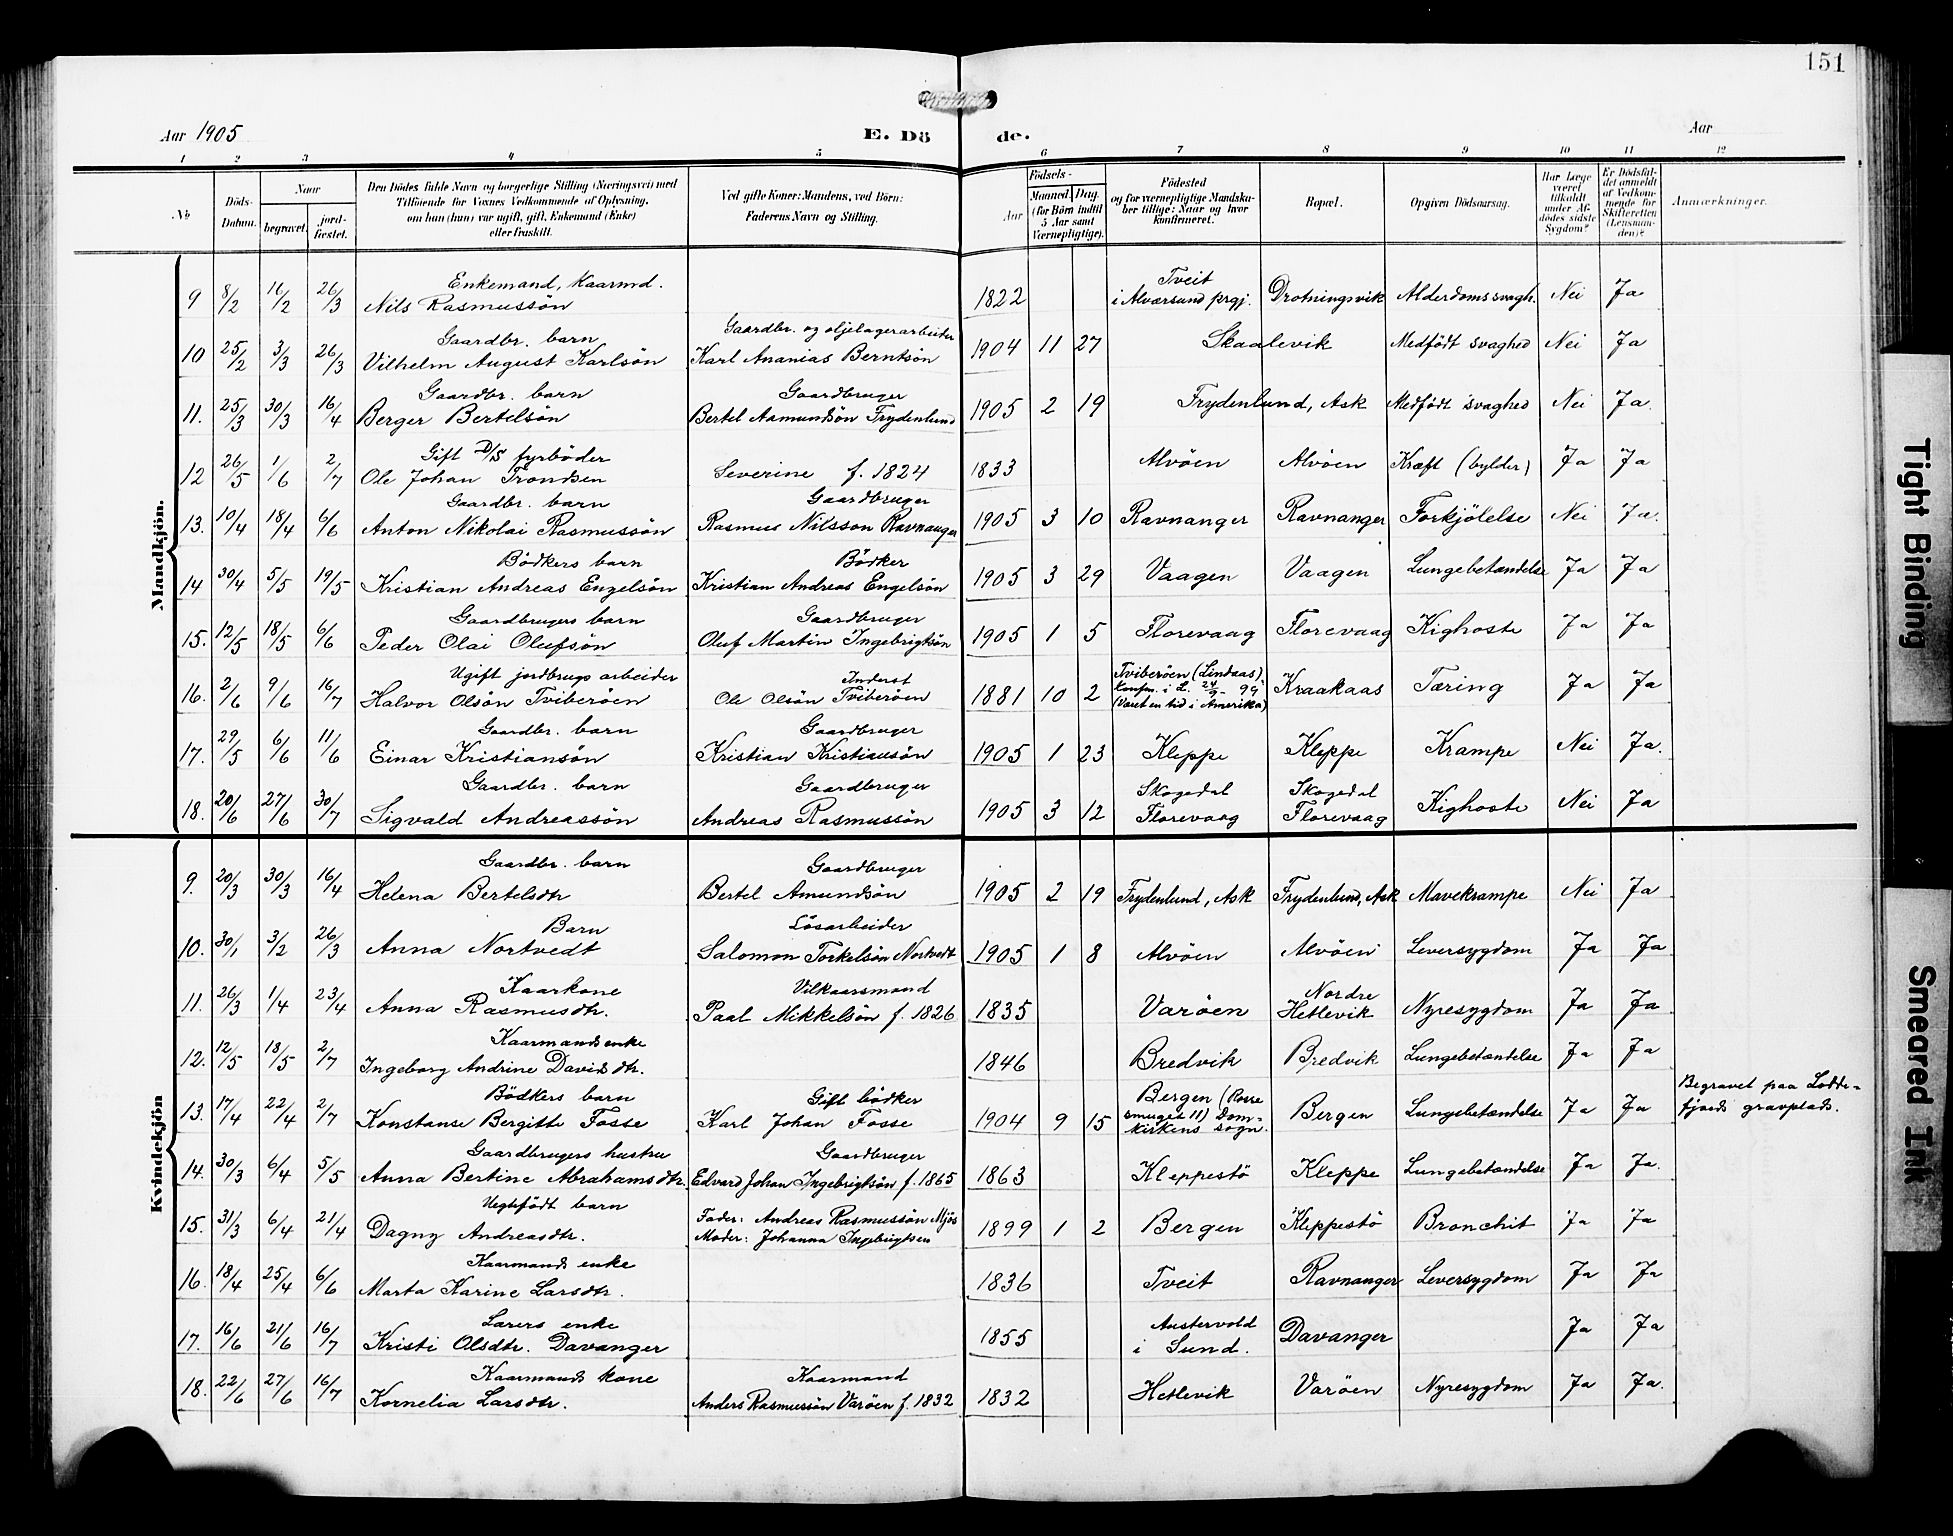 151
Aar 1905
E. Dö de.
Aar
1 2 3 4 5 6 7 8 9 10 11 12
No
Döds-Datum.
Naar
begravet.
jord-fæstet.
Den Dödes fulde Navn og borgerlige Stilling (Næringsvei) med
Tilföiende for Voxnes Vedkommende af Oplysning,
om han (hun) var ugift, gift, Enkemand (Enke)
eller fraskilt.
Ved gifte Koner: Mandens, ved Börn:
Faderens Navn og Stilling.
Födsels-
Aar
Maaned. Dag.
(for Börn indtil
5 Aar samt
Værnepligtige).
Födested
og for værnepligtige Mandska-
ber tillige: Naar og hvor
konfirmeret.
Bopæl.
Opgiven Dödsaarsag.
Har Læge
været
tilkaldt
under Af-
dödes sidste
Sygdom?
Er Dödsfal-
det anmeldt
af Vedkom-
mende for
Skifteretten
(Lensman-
den)?
Anmærkninger.
Mandkjön.
Enkemand, Kaarmd. Tveit
9 8/2 16/2 26/3 Nils Rasmussön 1822 i Alværsund prgj. Drotningsvik Alderdomssvagh. Nei Ja
Gaardbr. barn Gaardbr. og oljelagerarbeider
10 25/2 3/3 26/3 Vilhelm August Karlsön Karl Ananias Berntsön 1904 11 27 Skaalevik Medfödt svaghed Nei Ja
Gaardbr. barn Gaardbruger
11. 25/3 30/3 16/4 Berger Bertelsön Bertel Aamundsön Frydenlund 1905 2 19 Frydenlund, Ask Medfödt svaghed Nei Ja.
Gift D/S fyrböder
12 26/5 1/6 2/7 Ole Johan Trondsen Severine f. 1824 1833 Alvöen Alvöen Kræft (bylder) Ja Ja
Gaardbr. barn Gaardbruger
13. 10/4 18/4 6/6 Anton Nikolai Rasmussön Rasmus Nilsson Ravnanger 1905 3 10 Ravnanger Ravnanger Forkjölelse Nei Ja.
Bödkers barn Bödker
14 30/4 5/5 19/5 Kristian Andreas Engelsön Kristian Andreas Engelsön 1905 3 29 Vaagen Vaagen Lungebetændelse Ja Ja
Gaardbrugers barn Gaardbruger
15. 12/5 18/5 6/6 Peder Olai Olufsön Oluf Martin Ingebrigtsön 1905 1 5 Florevaag Florevaag Kighoste Ja Ja
Ugift jordbrugsarbeider Inderst Tviberöen (Lindaas)
16. 2/6 9/6 16/7 Halvor Olsön Tviberöen Ole Olsön Tviberöen 1881 10 2 Konfm. i L. 24/9 - 99 Kraakaas Tæring Ja Ja
(Været en tid i Amerika)
Gaardbr. barn Gaardbruger
17. 29/5 6/6 11/6 Einar Kristiansön Kristian Kristiansön 1905 1 23 Kleppe Kleppe Krampe Nei Ja.
Gaardbr. barn Gaardbruger Skogedal Skogedal
18. 20/6 27/6 30/7 Sigvald Andreassön Andreas Rasmussön 1905 3 12 Florevaag Florevaag Kighoste Nei Ja
Kvindekjön
Gaardbr. barn Gaardbruger
9. 20/3 30/3 16/4 Helena Bertelsdtr Bertel Amundsön 1905 2 19 Frydenlund, Ask Frydenlund, Ask Mavekrampe Nei Ja
Barn Lösarbeider
10. 30/1 3/2 26/3 Anna Nortvedt Salomon Torkelsön Nortvedt 1905 1 8 Alvöen Alvöen Leversygdom Ja Ja
Kaarkone Vilkaarsmand Nordre
11. 26/3 1/4 23/4 Anna Rasmusdtr. Paal Mikkelsön f. 1826 1835 Varöen Hetlevik Nyresygdom Ja Ja
Kaarmands enke
12. 12/5 18/5 2/7 Ingeborg Andrine Davidsdtr. 1846 Bredvik Bredvik Lungebetændelse Ja Ja
Bödkers barn Gift bödker Bergen (Rosse Begravet paa Lodde-
13. 17/4 22/4 2/7 Konstanse Bergitte Fosse Karl Johan Fosse 1904 9 15 smuget 11) Dom- Bergen Lungebetændelse Ja Ja fjords gravplads.
kirkens sogn.
Gaardbrugers hustru Gaardbruger
14. 30/3 6/4 5/5 Anna Bertine Abrahamsdtr. Edvard Johan Ingebrigtsön f. 1865 1863 Kleppestö Kleppe Lungebetændelse Ja Ja.
Uegtefödt barn Fader: Andreas Rasmussön Mjös
15. 31/3 6/4 21/4 Dagny Andreasdtr. Moder: Johanna Ingebrigtsen 1899 1 2 Bergen Kleppestö Bronchit Ja Ja
Kaarmands enke
16. 18/4 25/4 6/6 Marta Karine Larsdtr. 1836 Tveit Ravnanger Leversygdom Ja Ja
Lærers enke Austervold
17. 16/6 21/6 16/7 Kristi Olsdtr. Davanger 1855 i Sund. Davanger Ja Ja
Kaarmands kone Kaarmand
18. 22/6 27/6 16/7 Kornelia Larsdtr. Anders Rasmussön Varöen f. 1832 1832 Hetlevik Varöen Nyresygdom Ja Ja.
Tight Binding
Smeared Ink